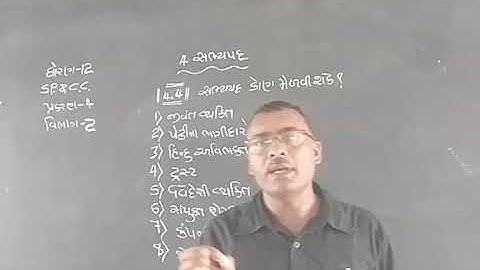 ધોરણ-12
S.P.&C.C.
પ્રકરણ-4
વિભાગ-2
A સભ્યપદ
4.4 સભ્યપદ કોણ મેળવી શકે?
1) જીવંત વ્યક્તિ
2) પેઢીના ભાગીદારો
3) હિન્દુ અવિભક્ત
4) ટ્રસ્ટ
5) વિદેશી વ્યક્તિ
6) સંયુક્ત
7) કંપની
8)